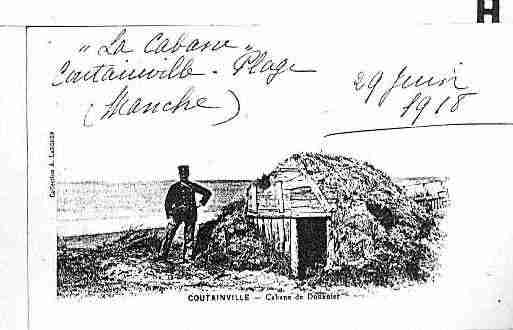 H
"La Cabane"
Coutainville - Plage
(Manche)
29 Juin
1918
Collection A. 
COUTAINVILLE — Cabane de Douanier